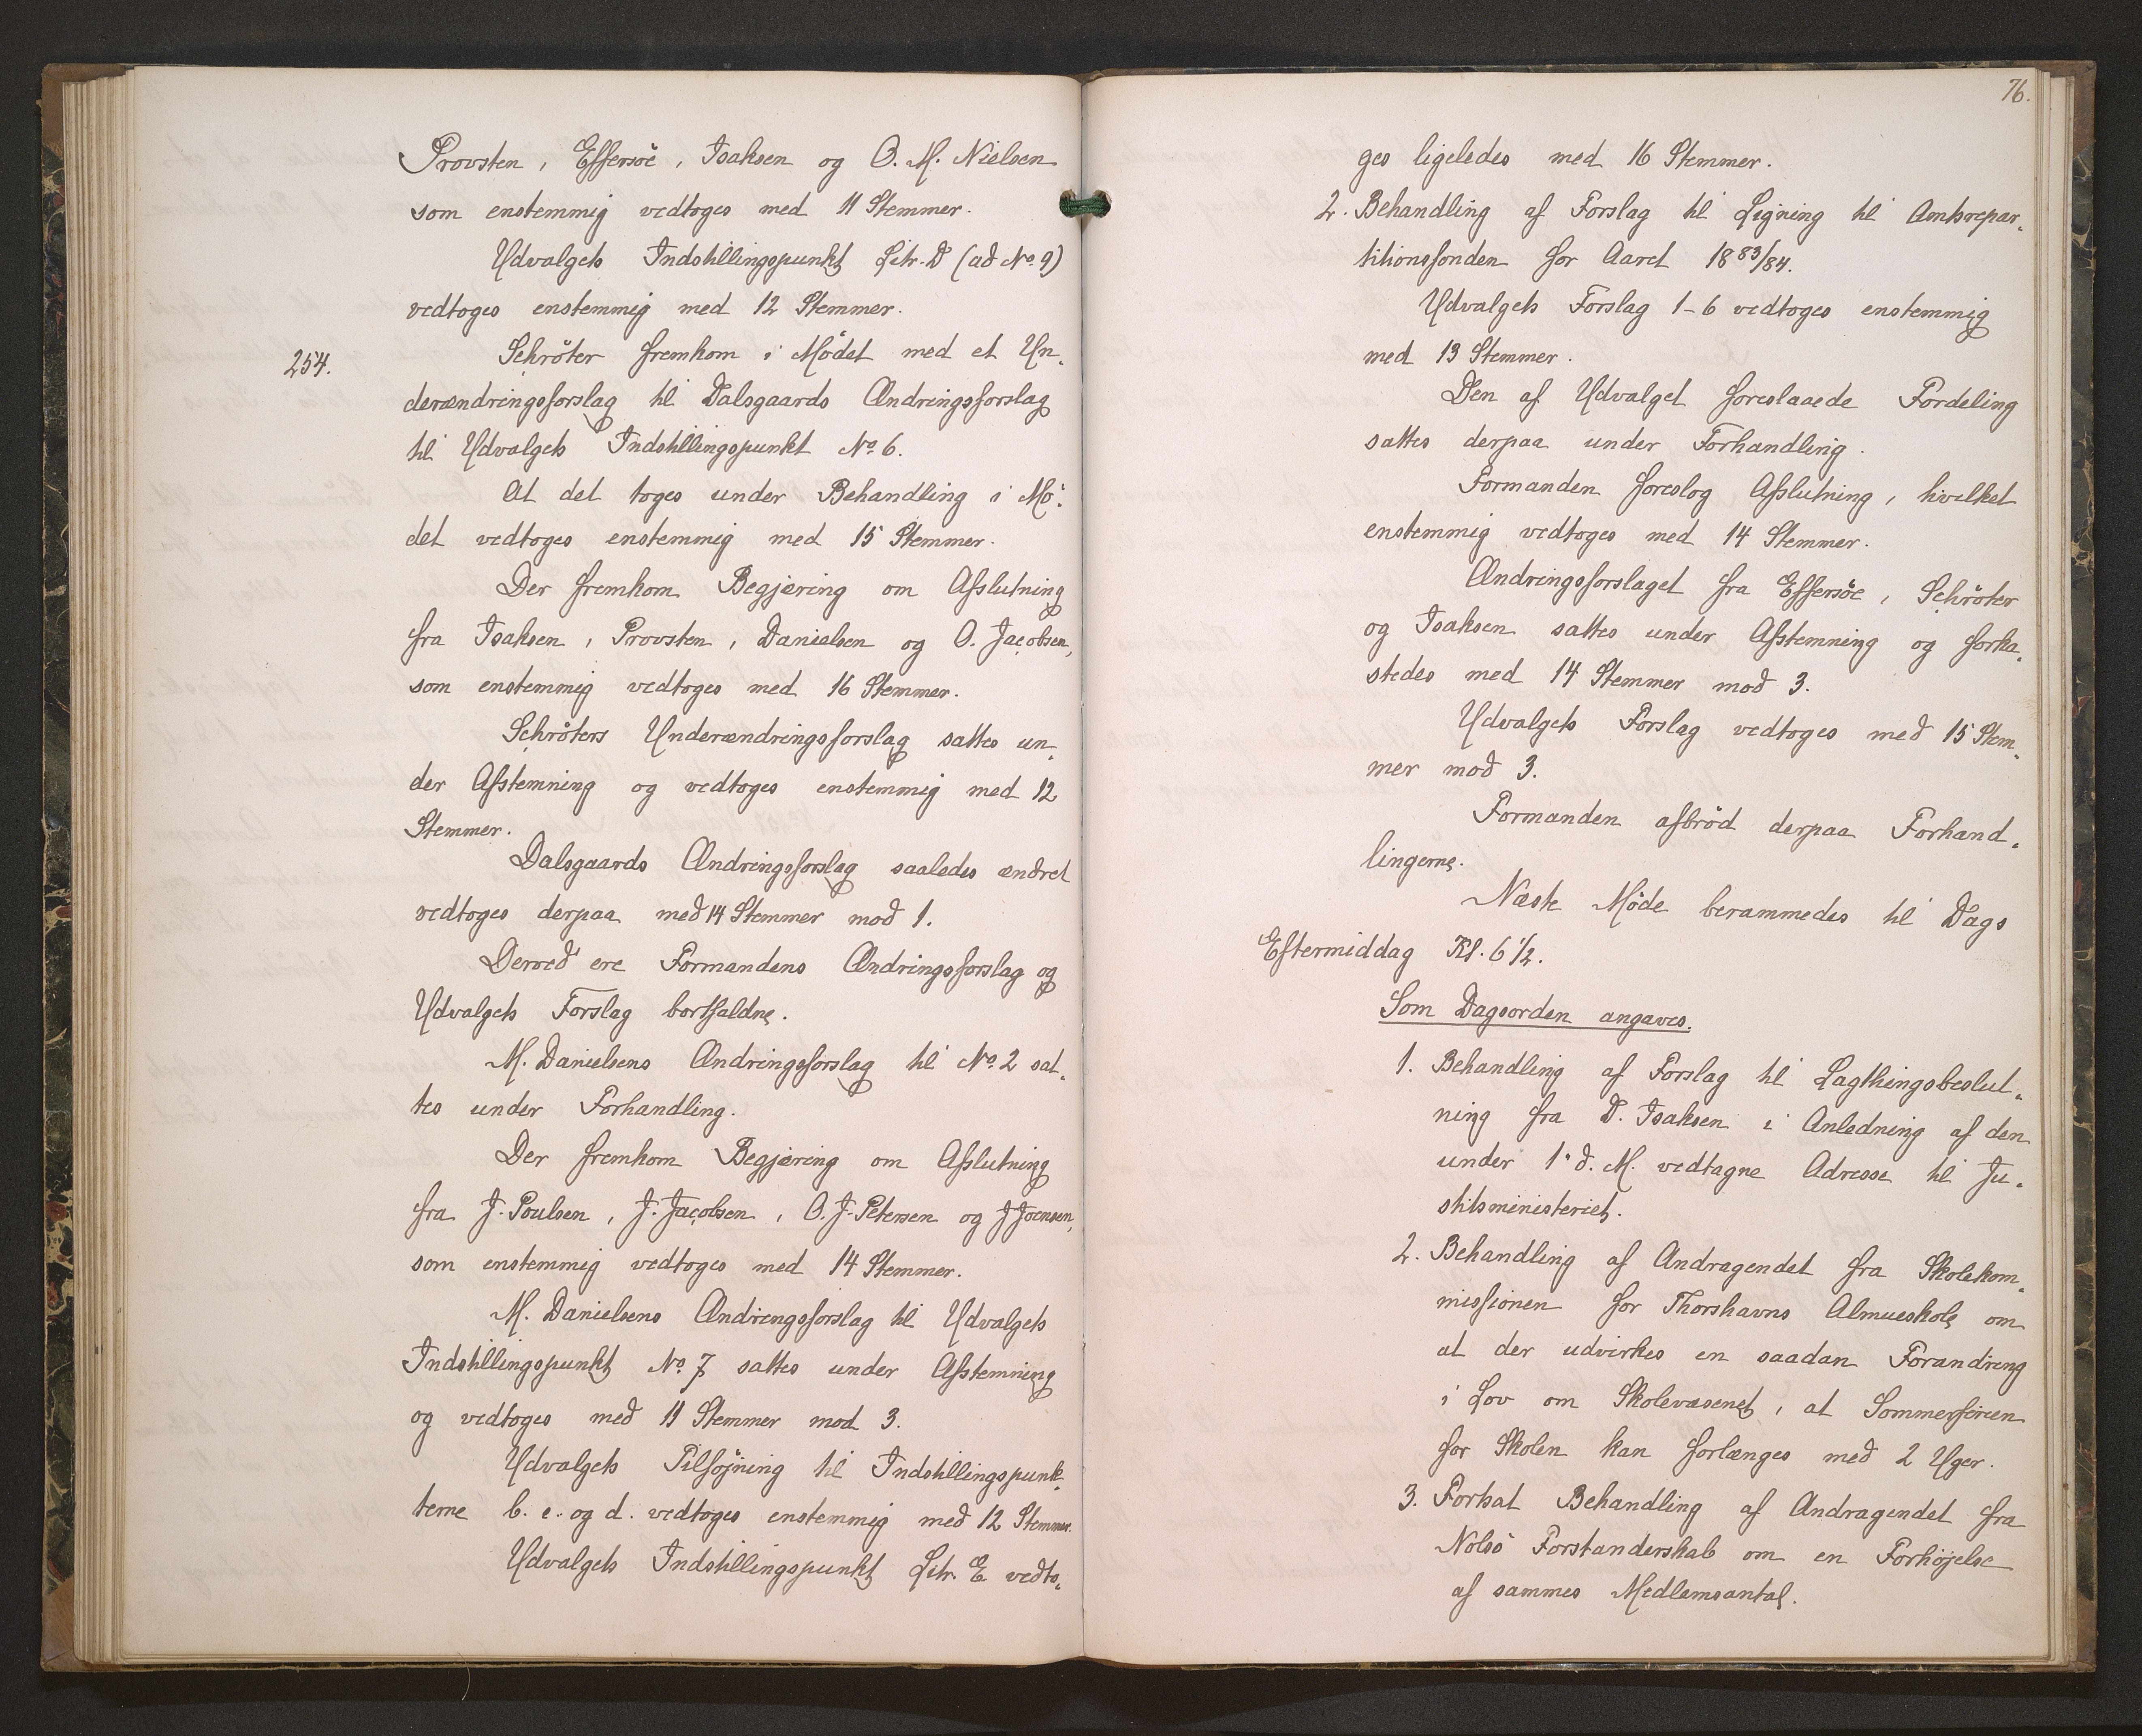 Provsten, Effersöe, Isaksen og O. M. Nielsen
som enstemmig vedtoges med 11 Stemmer.
Udvalgets Indstillingspunkt Litr. D (ad No. 9)
vedtoges enstemmig med 12 Stemmer.
254.
Schröter fremkom i Mödet med et Un„
derændringsforslag til Dalsgaards Ændringsforslag
til Udvalgets Indstillingspunkt No. 6.
At det toges under Behandling i Mö„
det vedtoges enstemmig med 15 Stemmer.
Der fremkom Begjæring om Afslutning
fra Isaksen, Provsten, Danielsen og O. Jacobsen,
som enstemmig vedtoges med 16 Stemmer.
Schröters Underændringsforslag sattes un„
der Afstemning og vedtoges enstemmig med 12
Stemmer.
Dalsgaards Ændringsforslag saaledes ændret
vedtoges derpaa med 14 Stemmer mod 1.
Derved ere Formandens Ændringsforslag og
Udvalgets Forslag bortfaldne.
M. Danielsens Ændringsforslag til No. 2 sat„
tes under Forhandling.
Der fremkom Begjæring om Afslutning
fra J. Poulsen, J. Jacobsen, O. J. Petersen og J Joensen,
som enstemmig vedtoges med 14 Stemmer.
M. Danielsens Ændringsforslag til Udvalgets
Indstillingspunkt No. 7 sattes under Afstemning
og vedtoges med 11 Stemmer mod 3.
Udvalgets Tilföjning til Indstillingspunk„
terne b. c. og d. vedtoges enstemmig med 12 Stemmer.
Udvalgets Indstillingspunkt Litr. E vedto„
76.
ges ligeledes med 16 Stemmer.
2. Behandling af Forslag til Ligning til Amtsrepar„
titionsfonden for Aaret 1883/84.
Udvalgets Forslag 1-6 vedtoges enstemmig
med 13 Stemmer.
Den af Udvalget foreslaaede Fordeling
sattes derpaa under Forhandling.
Formanden foreslog Afslutning, hvilket
enstemmig vedtoges med 14 Stemmer.
Ændringsforslaget fra Effersöe, Schröter
og Isaksen sattes under Afstemning og forka„
stedes med 14 Stemmer mod 3.
Udvalgets Forslag vedtoges med 15 Stem„
mer mod 3.
Formanden afbröd derpaa Forhand„
lingerne.
Næste Möde berammedes til Dags
Eftermiddag Kl. 6 1/2.
Som Dagsorden angaves.
1. Behandling af Forslag til Lagthingsbeslut„
ning fra D. Isaksen i Anledning af den
under 1. d. M. vedtagne Adresse til Ju„
stitsministeriet.
2. Behandling af Andragendet fra Skolekom„
missionen for Thorshavns Almueskole om
at der udvirkes en saadan Forandring
i Lov om Skolevæsenet, at Sommerferien
for Skolen kan forlænges med 2 Uger.
3. Fortsat Behandling af Andragendet fra
Nolsö Forstanderskab om en Forhöjelse
af sammes Medlemsantal.